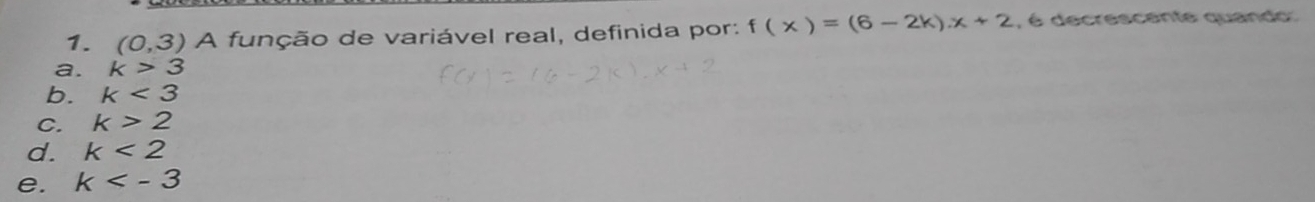 1. (0,3) A função de variável real, definida por: f ( x ) = (6 – 2k).x + 2, é decrescente quando:
a. k > 3
f(x) = (6 - 2k).x + 2
b. k < 3
c. k > 2
d. k < 2
e. k < - 3